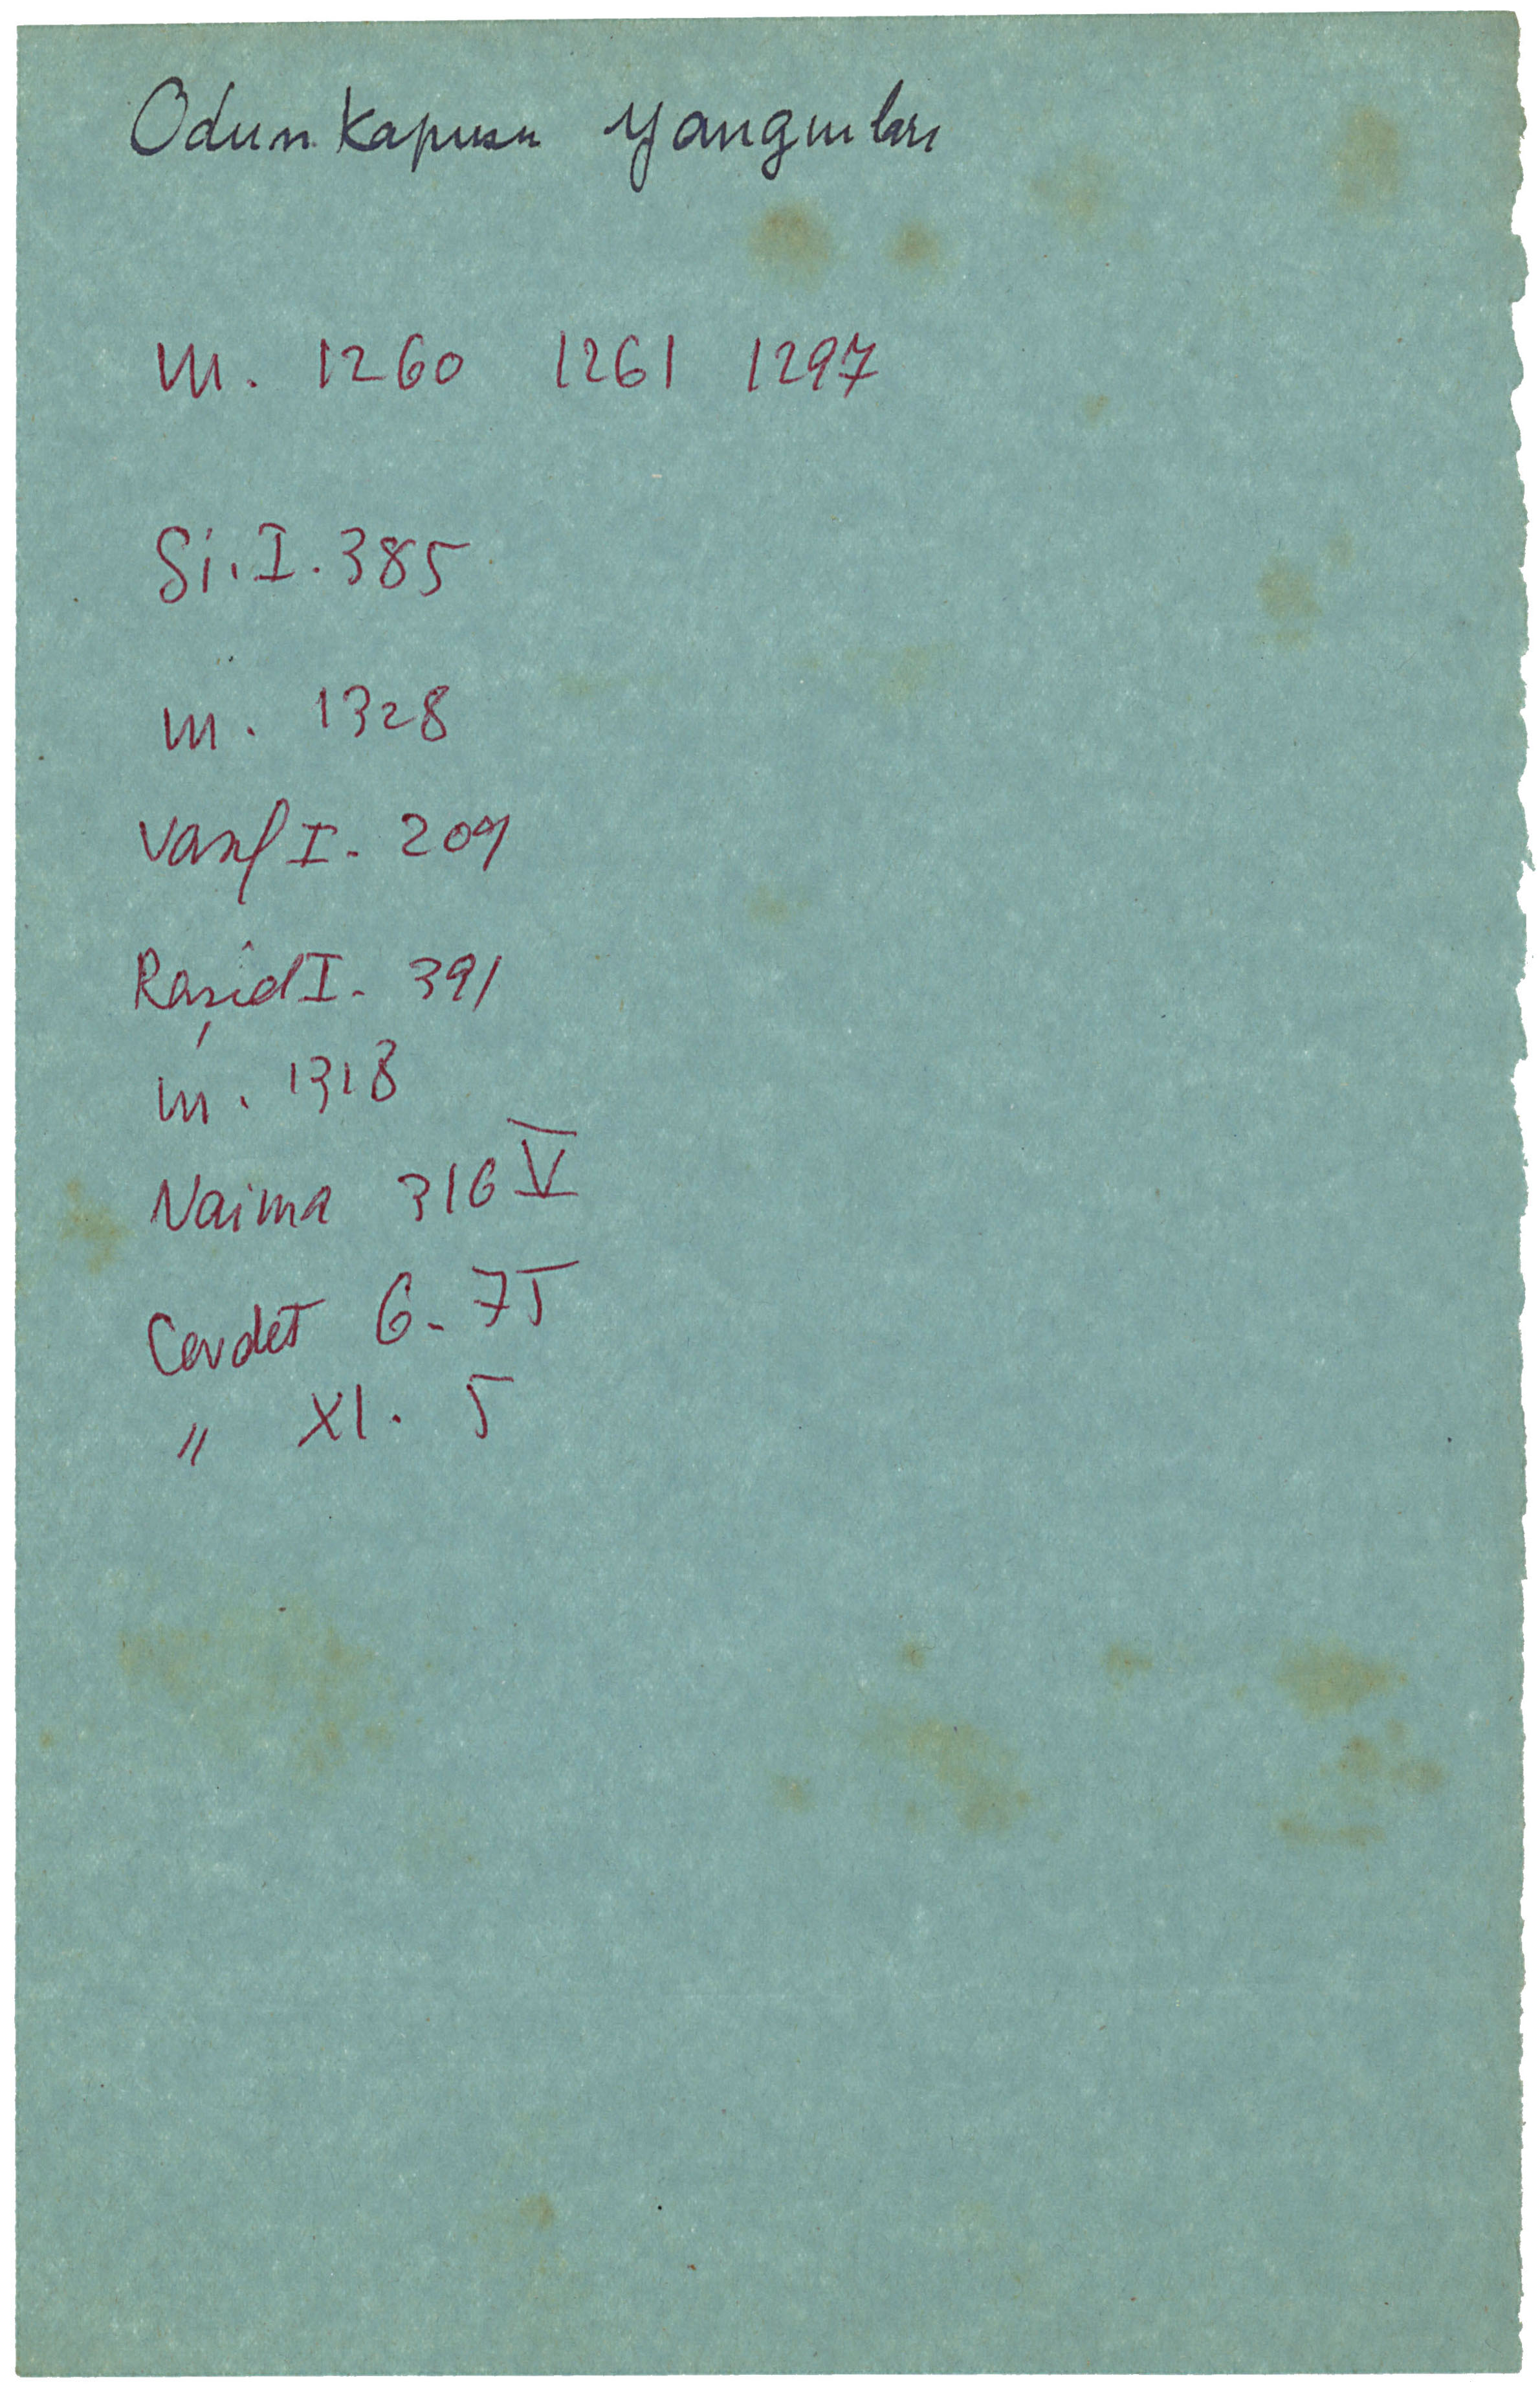 Odun kapusu yangınları
m. 1260 1261 1297
Si. I. 385
m. 1328
Vasıf I - 209
Raşid I - 391
m. 1318
Naima 316 V
Cevdet 6 - 75
" XI. 5